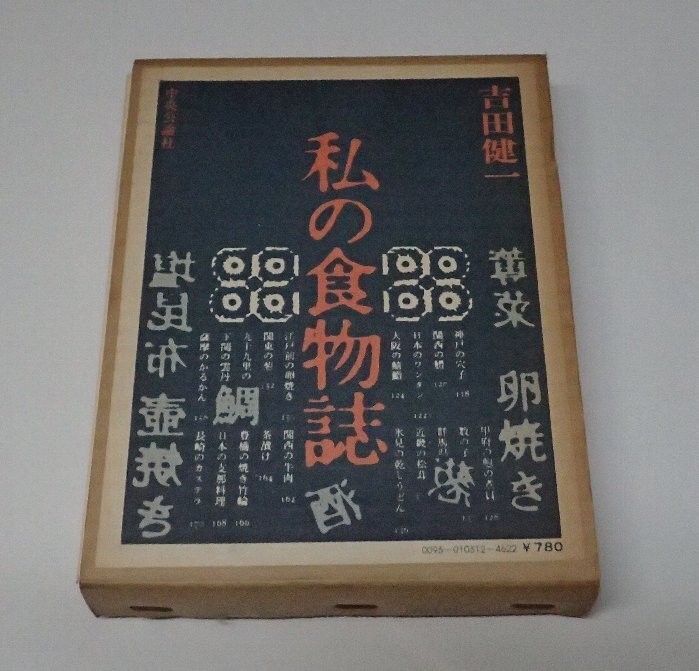 吉田健一
私の食物誌
中央公論社
蓴菜
卵焼き
塩昆布
壺焼き
鯛
酒
神戸の穴子 118
関西の鱧 120
日本のワンタン 122
大阪の鯖鮨 124
数の子
群馬県
近畿の松茸
氷見の乾しうどん
江戸前の卵焼き
関東の葱 152
九十九里の
下関の雲丹
薩摩のかるかん
関西の牛肉 162
茶漬け 164
豊橋の焼き竹輪 166
日本の支那料理 168
長崎のカステラ 170
0095-010312-4622 ¥780